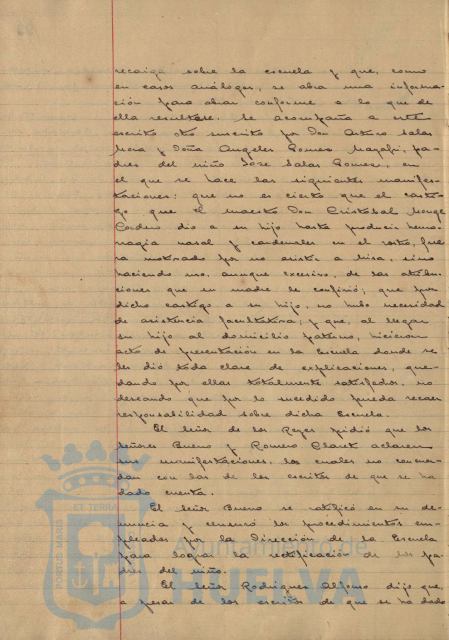 recaiga sobre la escuela y que, como
en casos análogos, se abra una informa-
ción para obrar conforme a lo que de
ella resultare. Se acompaña a este
escrito otro suscrito por Don Arturo Salas
Mora y Doña Angeles Gomez, pa-
dres del niño Jose Salas Gomez, en
el que se hace las siguientes manifes-
taciones: que no es cierto que el casti-
go que el maestro Don Cristóbal Monge
Cordero dió a su hijo hasta producir hemo-
rragia nasal y cardenales en el rostro, fue-
ra motivado por no asistir a misa, sino
haciendo uso, aunque excesivo, de las atribu-
ciones que su madre le confirió; que por
dicho castigo a su hijo, no hubo necesidad
de asistencia facultativa; y que, al llegar
su hijo al domicilio paterno, hicieron
acto de presentación en la Escuela donde se
les dió toda clase de explicaciones, que-
dando por ellas totalmente satisfechos, no
deseando que por lo sucedido pueda recaer
responsabilidad sobre dicha Escuela.
El señor de los Reyes pidió que los
señores Bueno y Romero Claret aclaren
sus manifestaciones, las cuales no concuer-
dan con las de los escritos de que se ha
dado cuenta.
El señor Bueno se ratificó en su de-
nuncia y censuró los procedimientos em-
pleados por la Dirección de la Escuela
para lograr la rectificación de los pa-
dres del niño.
El señor Rodriguez Alfonso dijo que,
a pesar de los escritos de que se ha dado
PORTUS MARIS
ET TERRAE
Ayuntamiento de
HUELVA